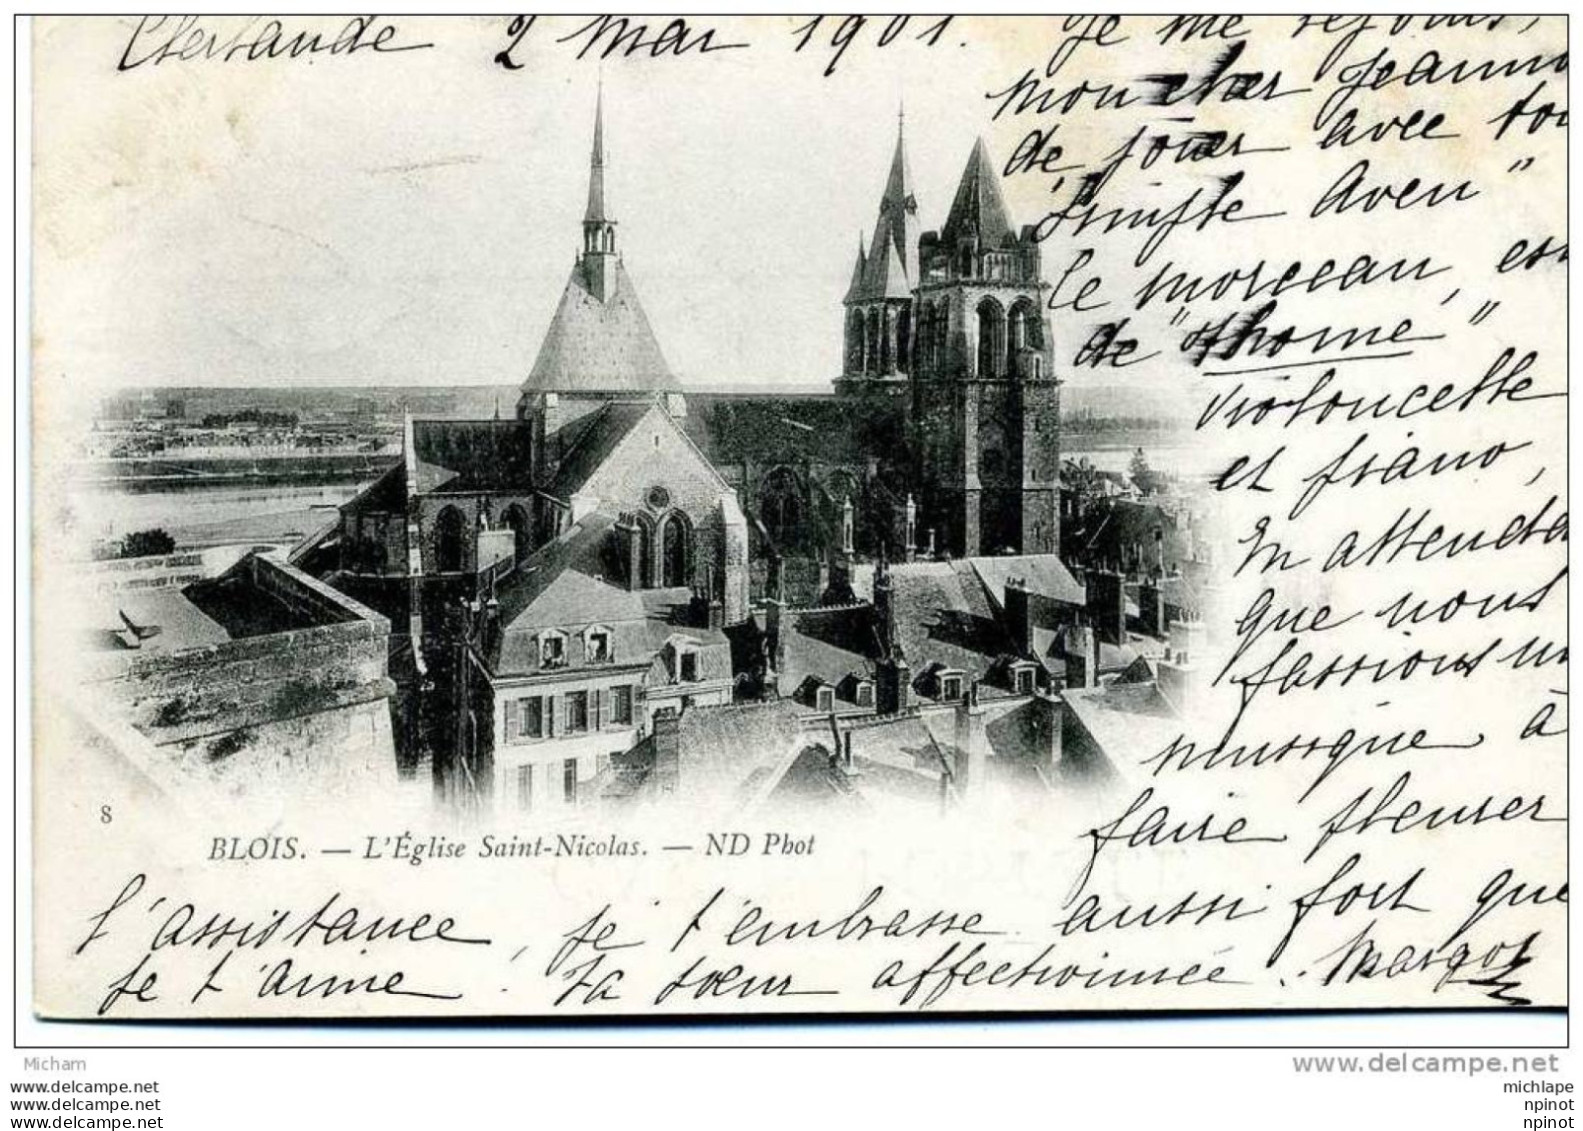 Herbande 2 mai 1901. Je me réjouis,
mon cher Jeanno
de jouer avec toi
"Simple Aveu"
le morceau, est
de "Thomé"
violoncelle
et piano,
En attenda
que nous
passions un
musique à
faire pleurer
8
BLOIS. — L'Église Saint-Nicolas. — ND Phot
l'assistance, je t'embrasse aussi fort que
je t'aime. Ta sœur affectionnée. Margot
Micham
www.delcampe.net
www.delcampe.net
www.delcampe.net
www.delcampe.net
michlape
npinot
npinot